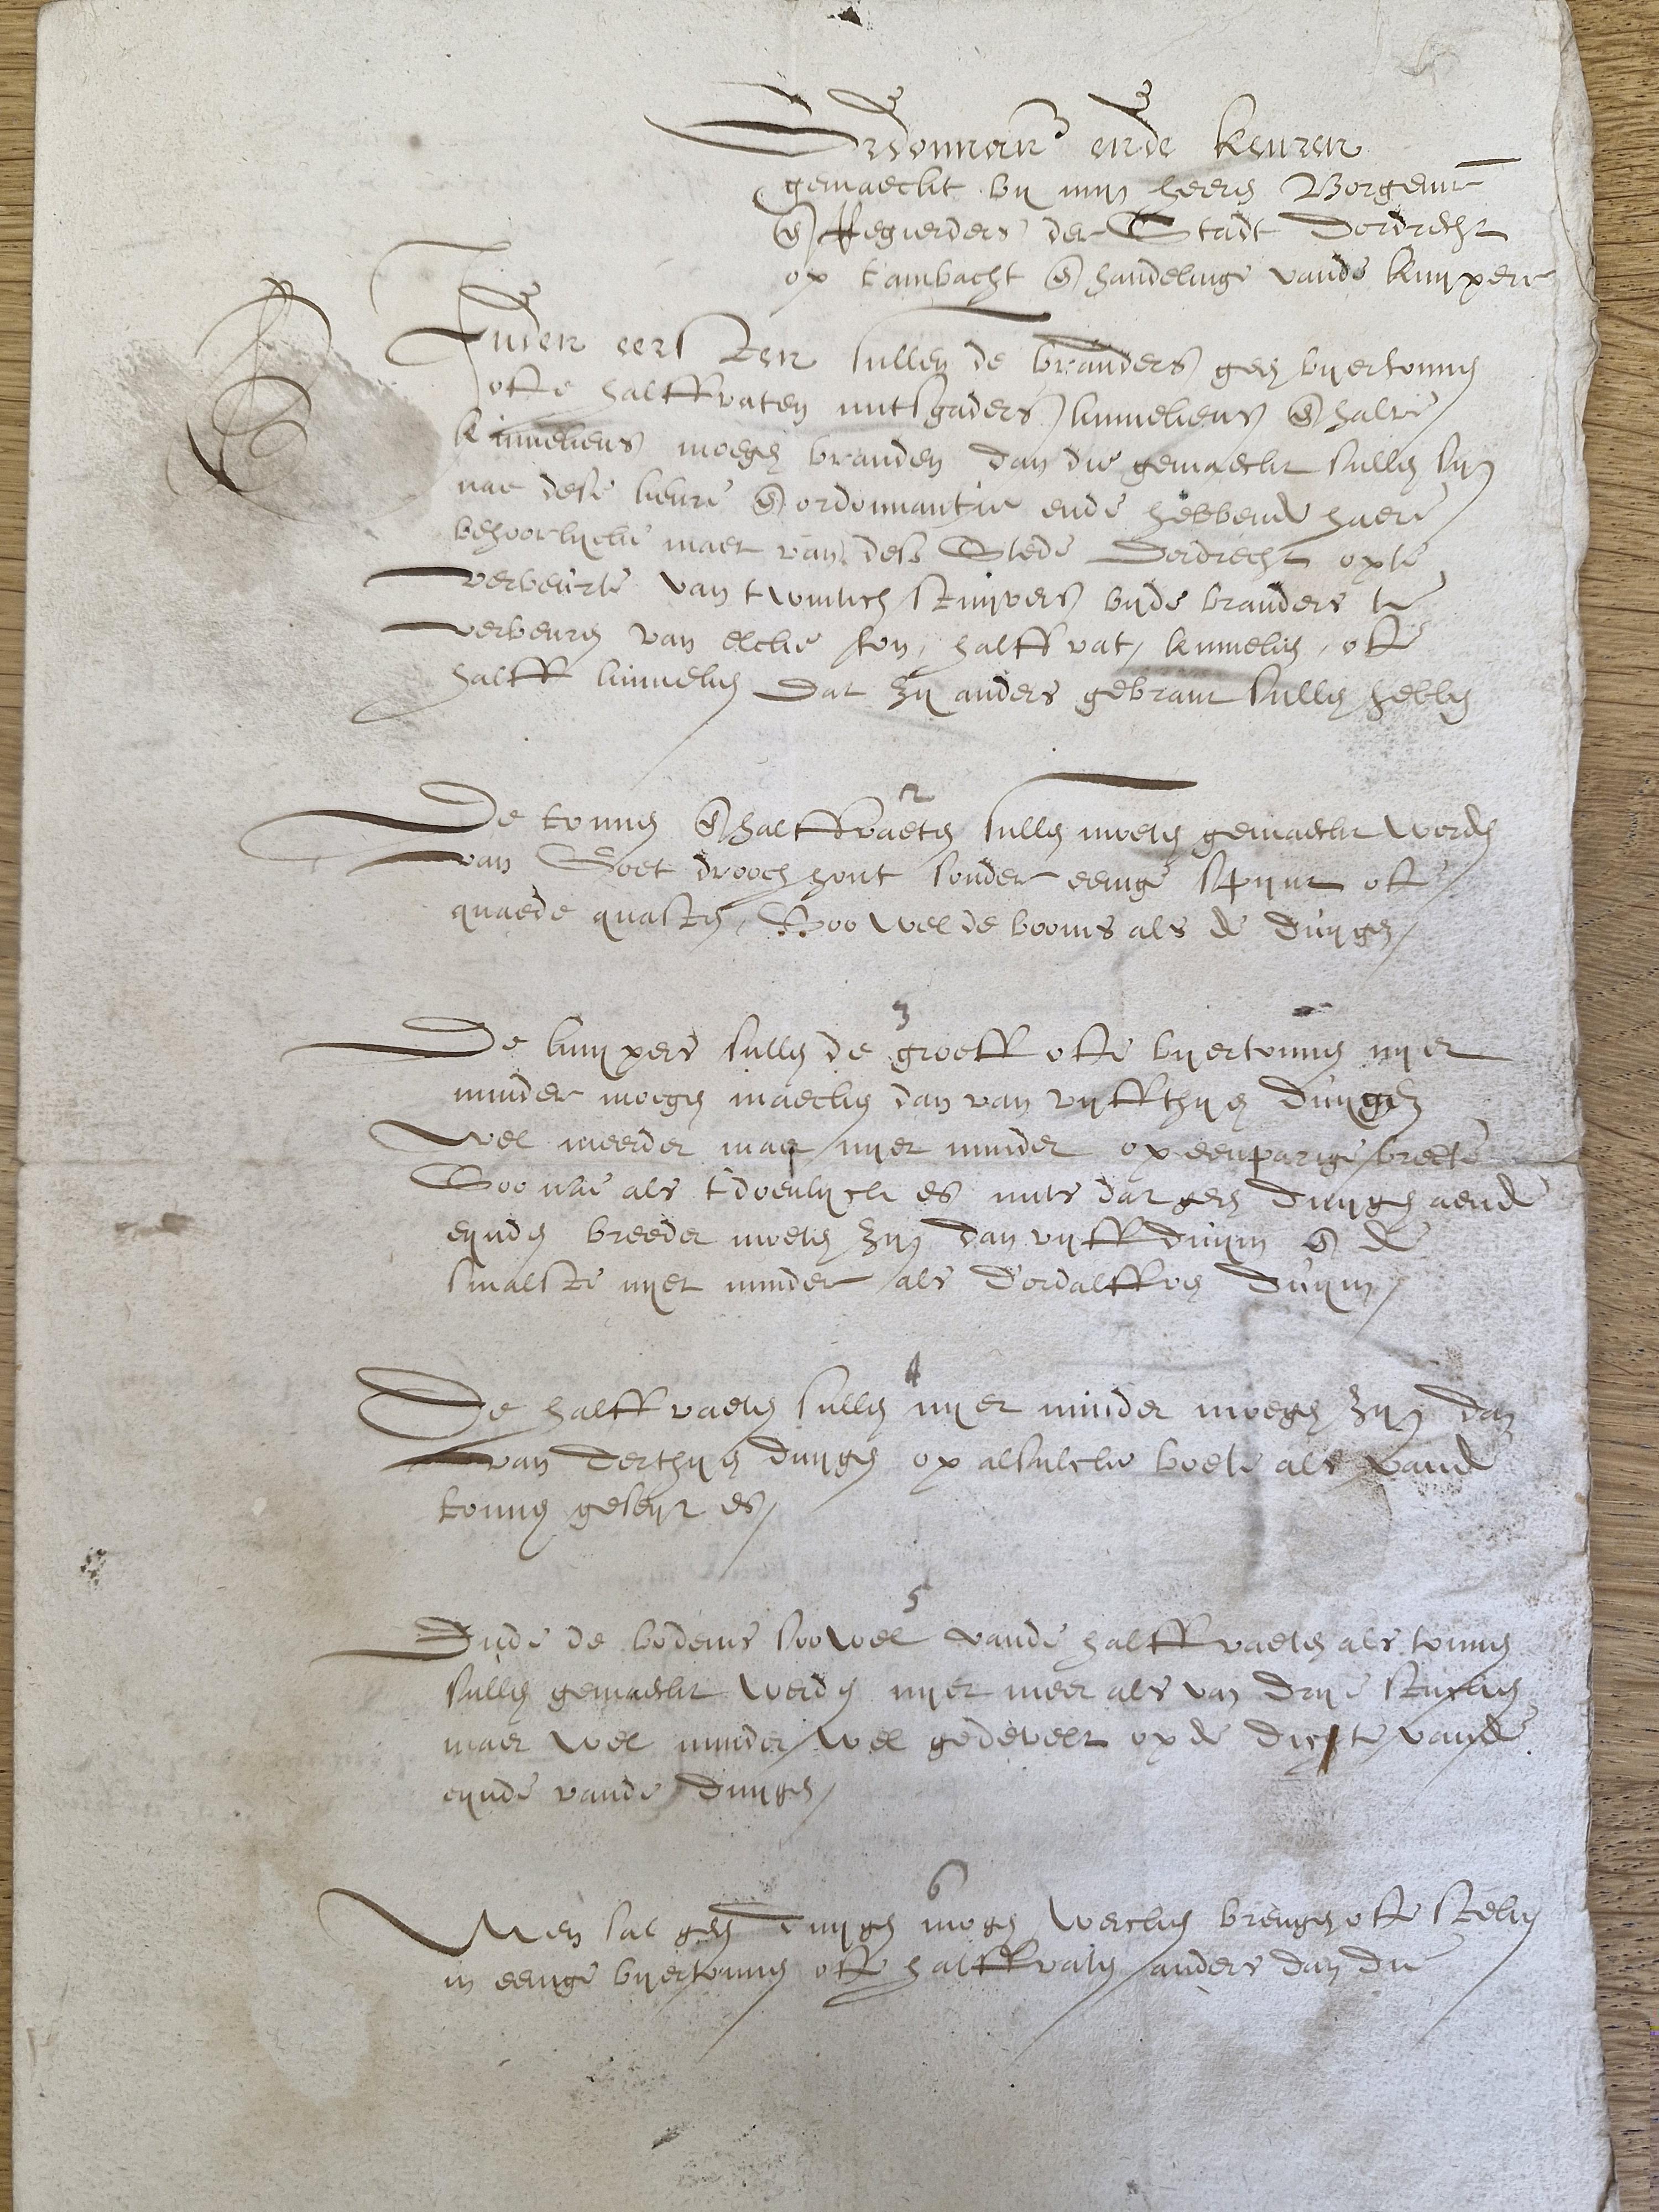 Ordonnan̄ ende keuren
gemaeckt bij mijn heeren Borgemr̄
en̄ Regierders der Stadt Dordrecht
op tambacht en̄ handelinge vande kuypers
Inden eersten sullen de branders geen bijertonnen
ofte halffvaten mitsgaders kinnekens en̄ halve
kinnekens moegen branden dan die gemaeckt sullen sijn
nae dese keure en̄ ordonnantie ende hebbende haere
behoorlycke maet van deser Stede Dordrecht opte
verbeurte van twintich stuyvers bijde branders te
verbeuren van elcke ton, halff vat, kinneken, oft
halff kinneken Dat zij anders gebrant sullen hebben
2
De tonnen en̄ halffvaeten sullen moeten gemaeckt worden
van Goet drooch hout sonder eenige spijnt oft
quaede quasten, Soo wel de booms als de duygen
3
De kuypers sullen de groeff ofte bijertonnen nyet
minder moegen maecken dan van vijffthyen duygen
wel meerder maer nyet minder op eenparige breete
Soo nae als t'doenlijck es mits dat geen duygen aende
eynden breeder moeten zijn dan vijff duym en̄ de
smalste nyet minder als dordalffven duym
4
De halffvaeten sullen nyet minder moegen zijn dan
van derthyen duygen op alsulcke boete als vande
tonnen geseyt es
5
Ende de bodems soowel vande halffvaeten als tonnen
sullen gemaeckt werden nyet meer als van drye stucken
maer wel minder wel gedevelt op de dichte vande
eynde vande duygen
6
Men sal geen duygen mogen wercken brengen oft stelen
in eenige bijertonnen oft halffvaten anders dan die